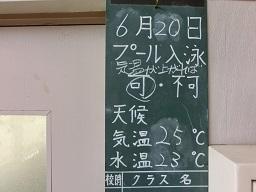 6月20日
プール入泳
気温が上がれば
可・不可
天候
気温25℃
水温23℃
校時 クラス 名